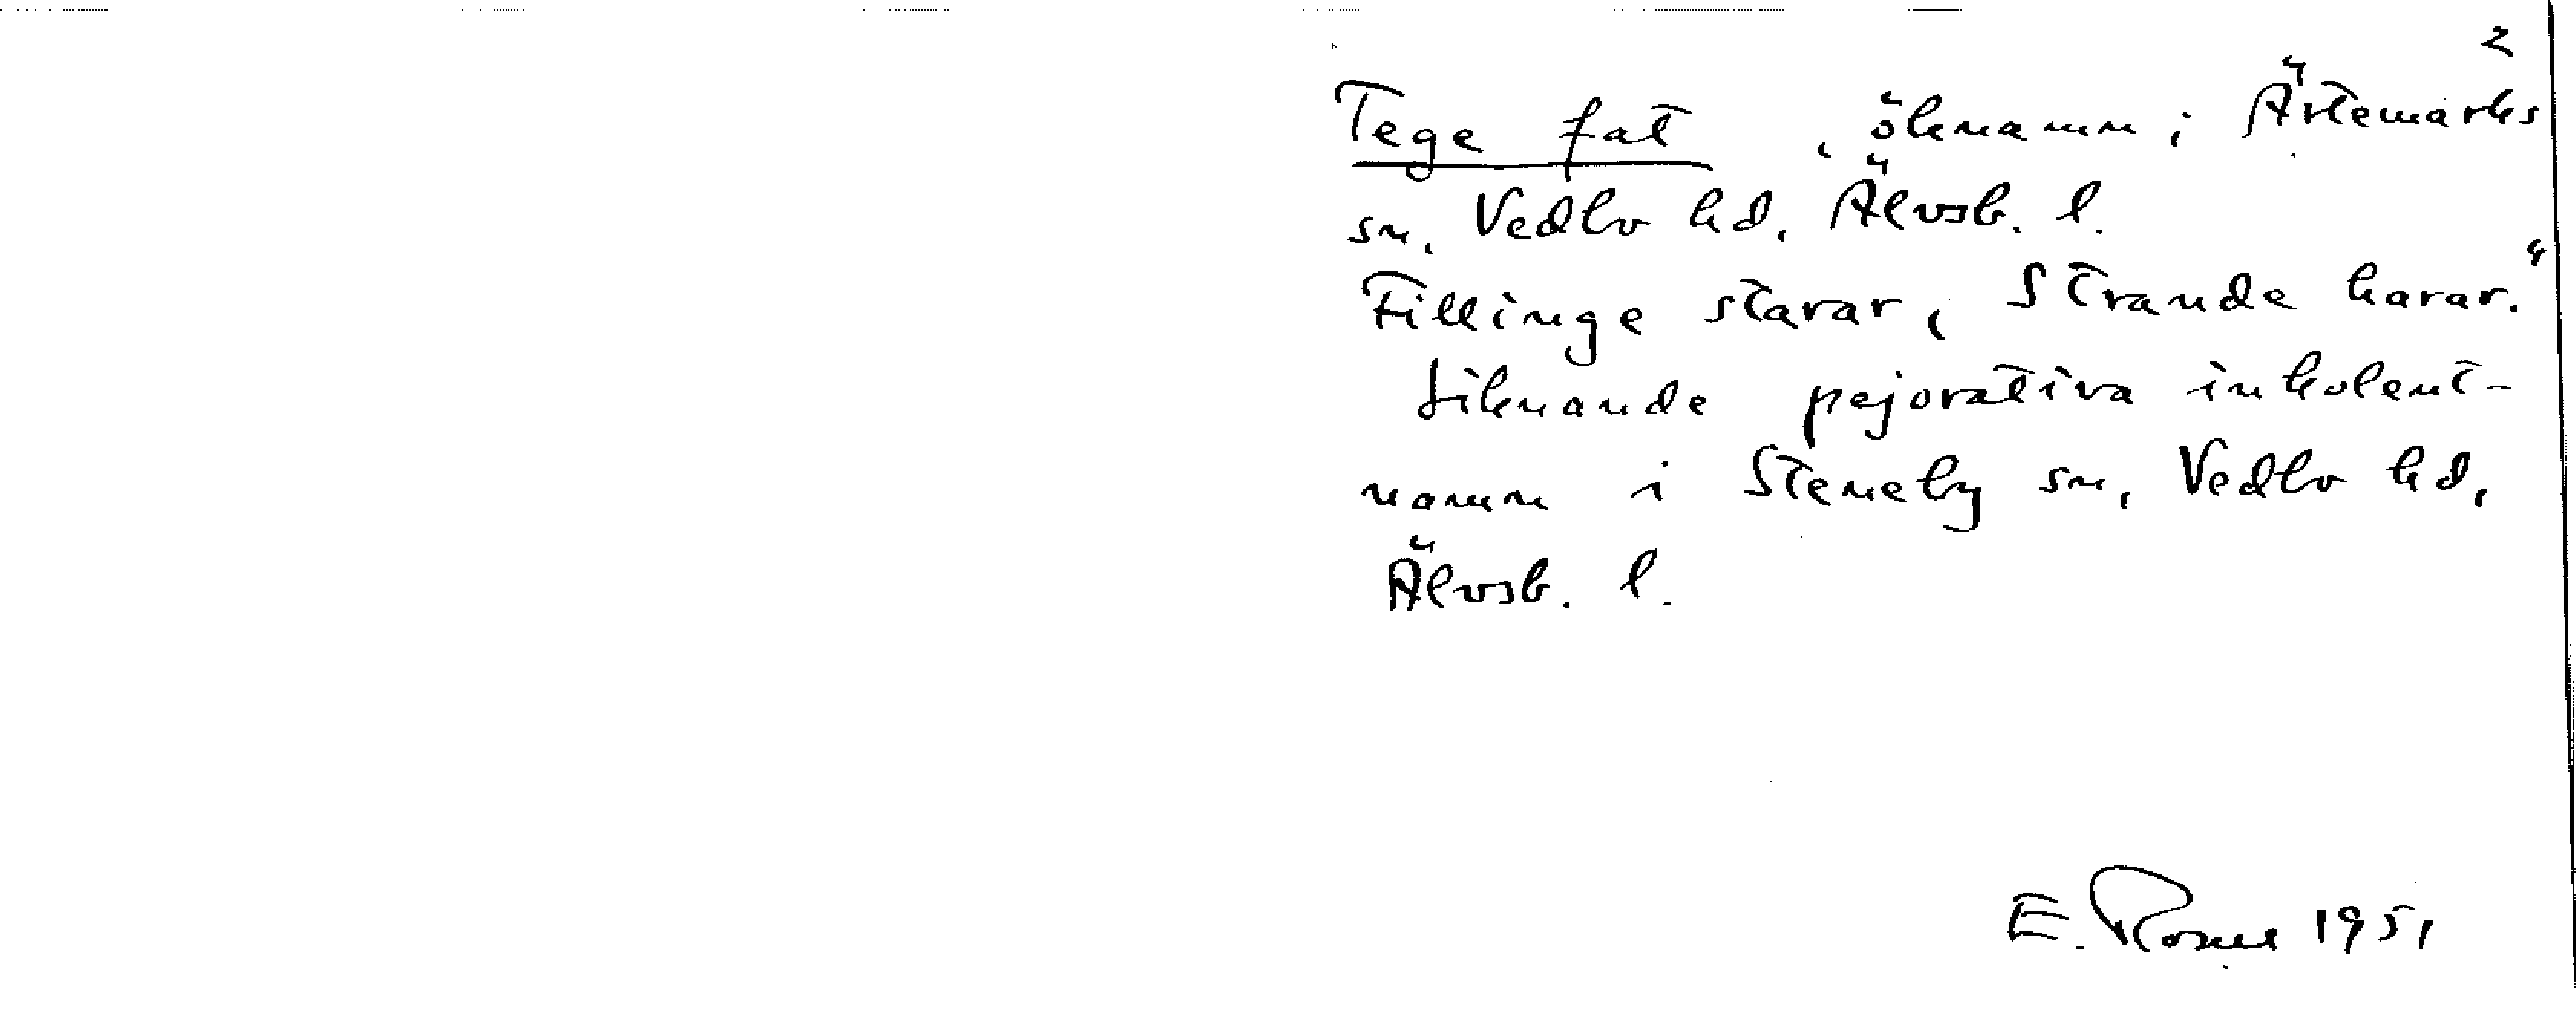 2
Tege fat, öknamn i Ärtemarks
sn, Vedbo hd, Älvsb. l.
Fillinge starar, Strande harar."
Liknande pejorativa inkolent-
namn i Steneby sn, Vedbo hd,
Älvsb. l.
E. 1951